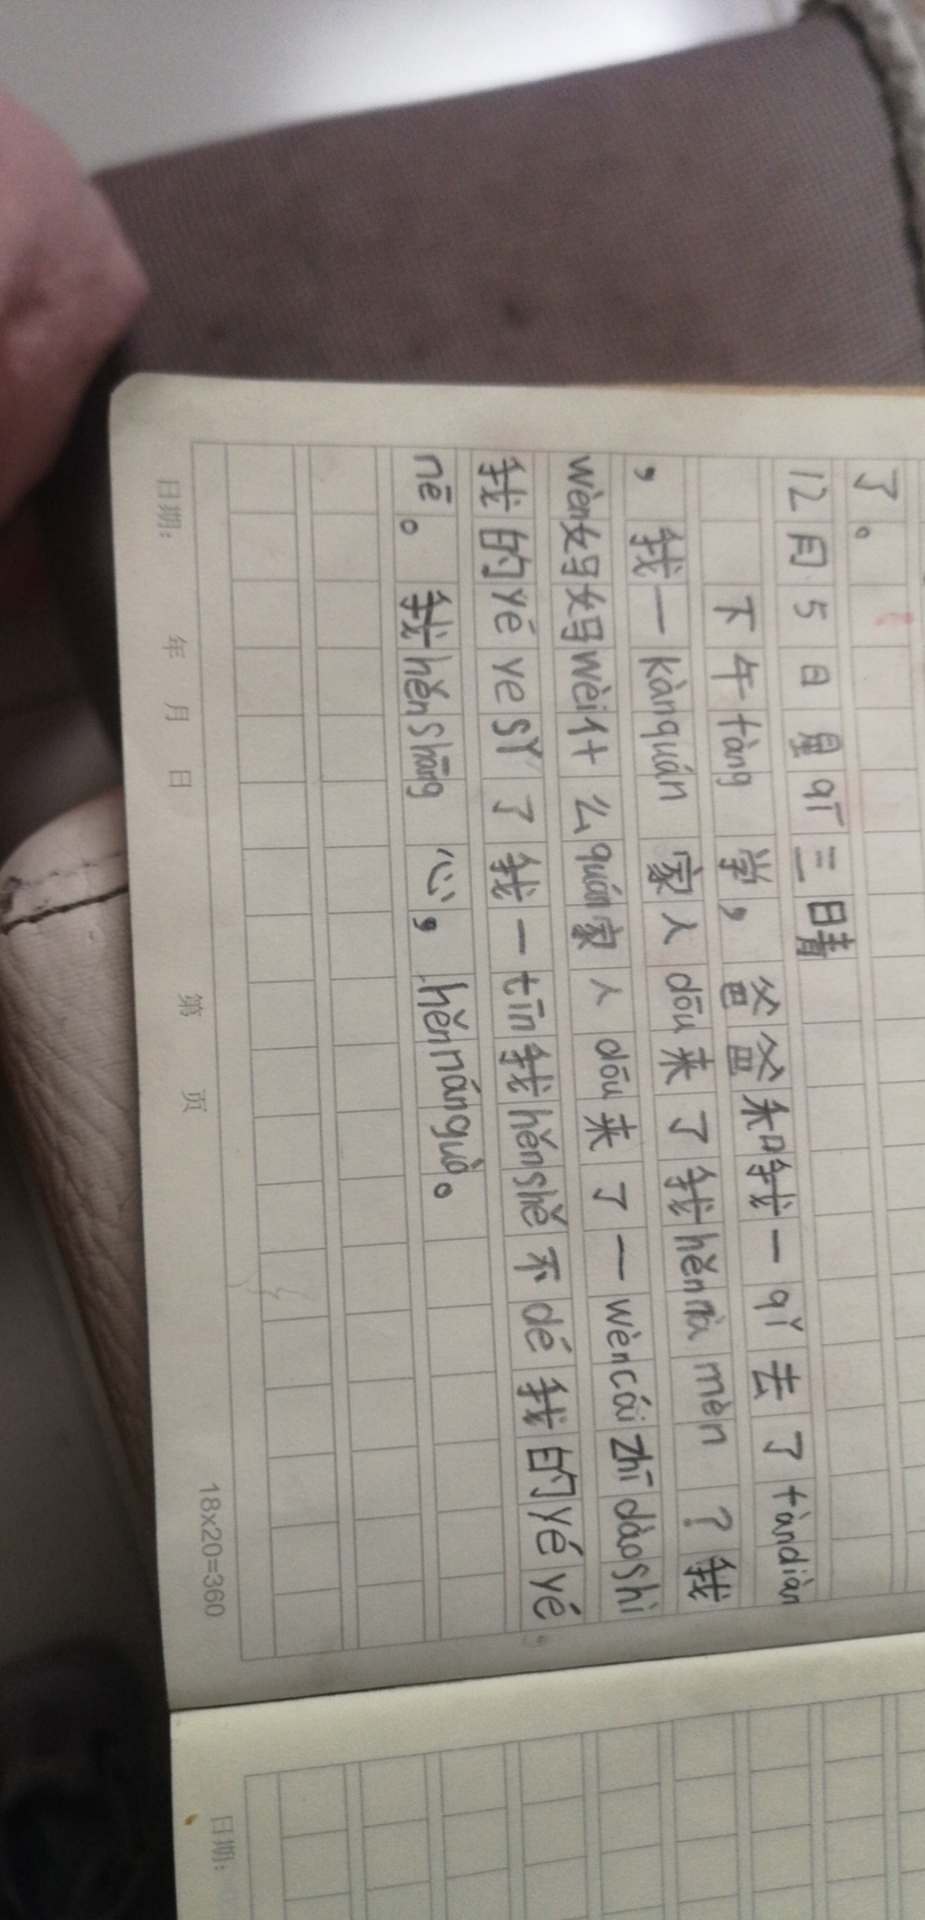 了。
12月5日星qī二晴
下午fàng学，爸爸和我一qǐ去了fàndiàn
，我一kànquán家人dōu来了我hěnnà mèn？我
wèn妈妈wèi什么quán家人dōu来了一wèncái zhī dàoshì
我的yé ye sǐ了我一tīn我hěnshě不dé我的yé yé
nē。我hěnshāng心，hěnnánguò。
日期： 年 月 日 第 页 18x20=360
日期：